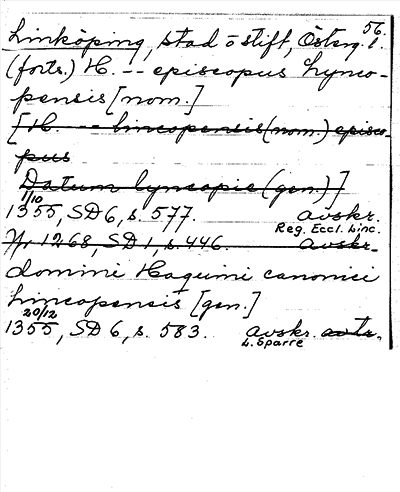 56.
Linköping, stad o stift, Österg. l.
(forts.) H. -- episcopus Lynco-
pensis [nom.]
[H. -- lincopensis (nom.) episco-
pus
Datum lyncopie (gen.)]
1/10
1355, SD 6, s. 577. avskr.
Reg. Eccl. Linc.
1268, SD 1, s. 446. avskr.
domini Haquini canonici
Lincopensis [gen.]
20/12
1355, SD 6, s. 583. avskr.
L. Sparre